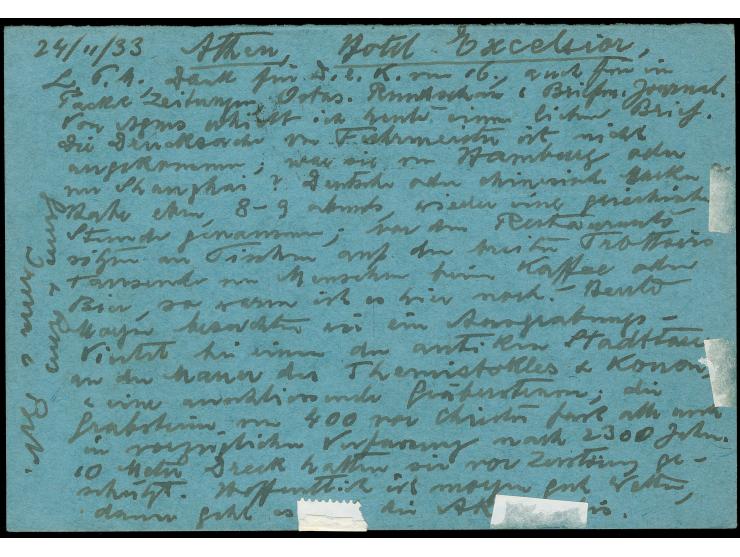 24/11/33 Athen, Hotel Excelsior,
L. P. M. Dank für D. l. K. vom 16. auch für in
Packt Zeitungen, Ostas. Rundschau & Briefm. Journal.
Von Agnes erhielt ich heute einen lieben Brief.
Die Drucksache von Fuhrmeister ist nicht
angekommen; war sie von Hamburg oder
von Shanghai? Deutsche oder chinesische Marken
Habe eben, 8-9 abends, wieder eine griechische
Stunde genommen; vor den Restaurants
sitzen an Tischen auf den breiten Trottoirs
Tausende von Menschen beim Kaffee oder
Bier, so warm ist es hier noch. Heute
Morgen besuchten wir ein Ausgrabungs-
Viertel bei einem der antiken Stadttore
an der Mauer des Themistokles & Konon,
& eine anschliessende Gräberstrasse; die
Grabsteine von 400 vor Christus fast alle noch
in vorzüglicher Verfassung nach 2300 Jahren.
10 Meter Dreck hatten sie vor Zerstörung ge-
schützt. Hoffentlich ist morgen gut Wetter,
dann geht es die Ak